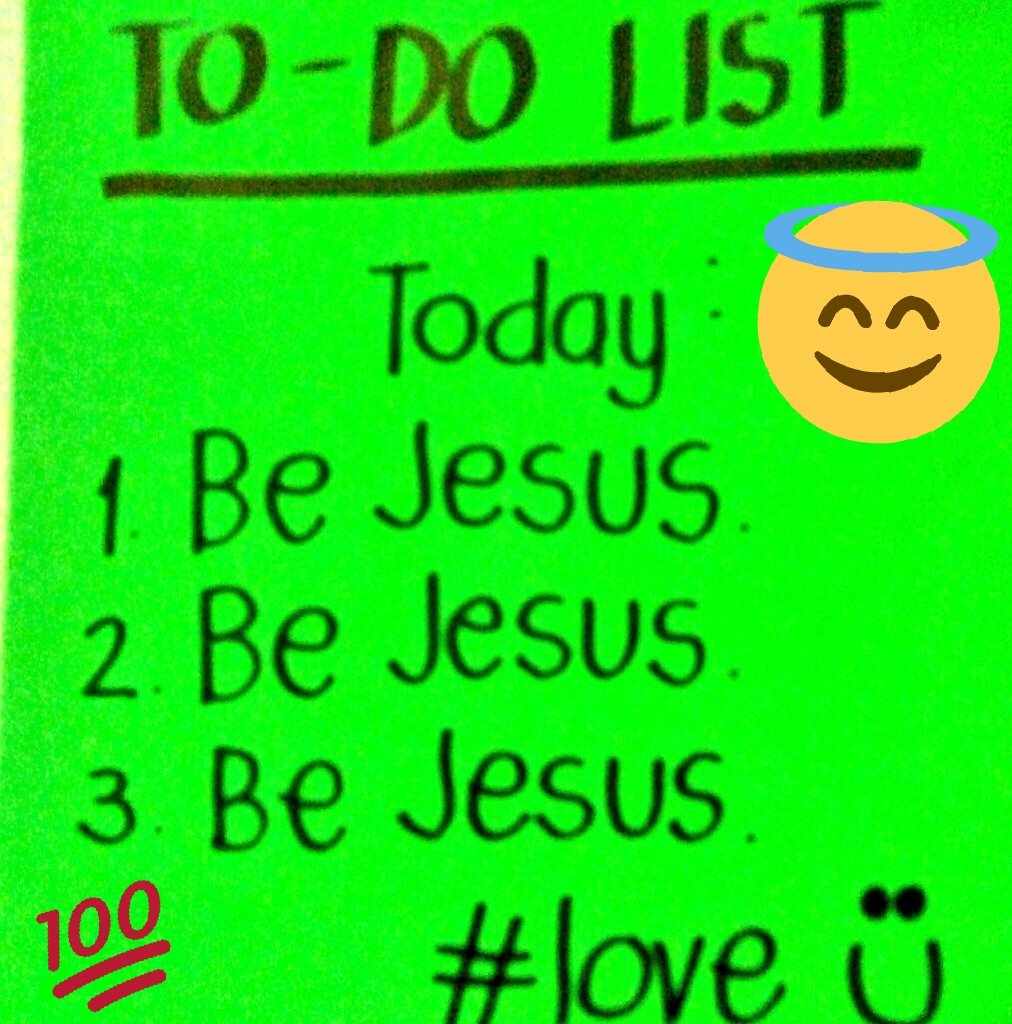 TO-DO LIST
Today :
1. Be Jesus.
2. Be Jesus.
3. Be Jesus.
100
#love Ü